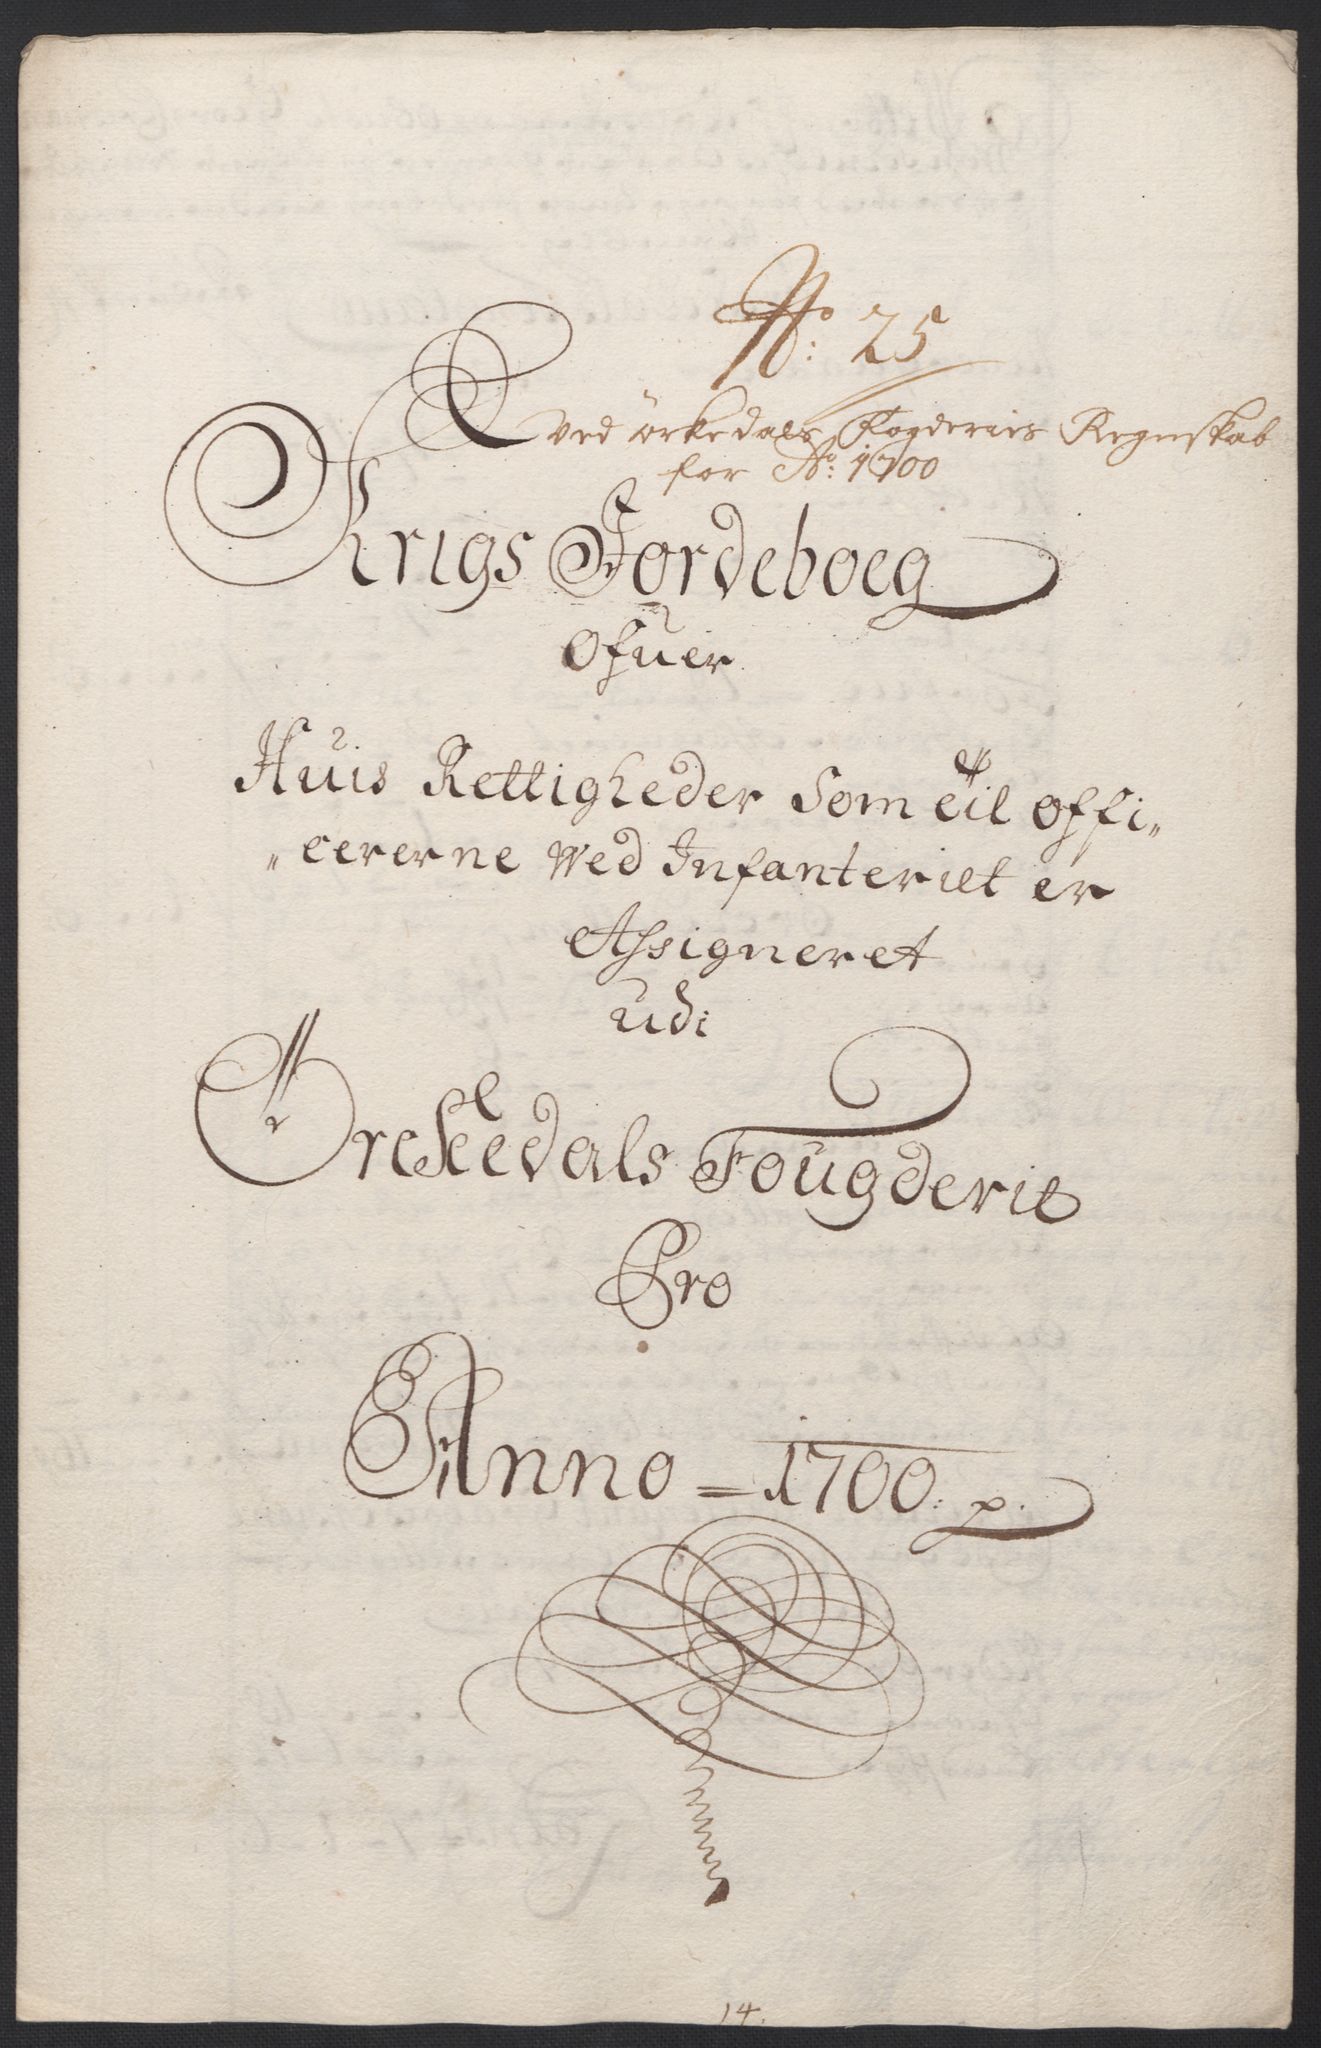 No: 25
ved örkedals Fogderies Regnskab
for Ao: 1700
Krigs Jordeboeg
Ofuer
Huis Rettigheder Som til Offi„
„cererne Wed Infanteriet er
Assigneret
udi
Orckedals Fougderie
Pro
Anno = 1700. p.
14.